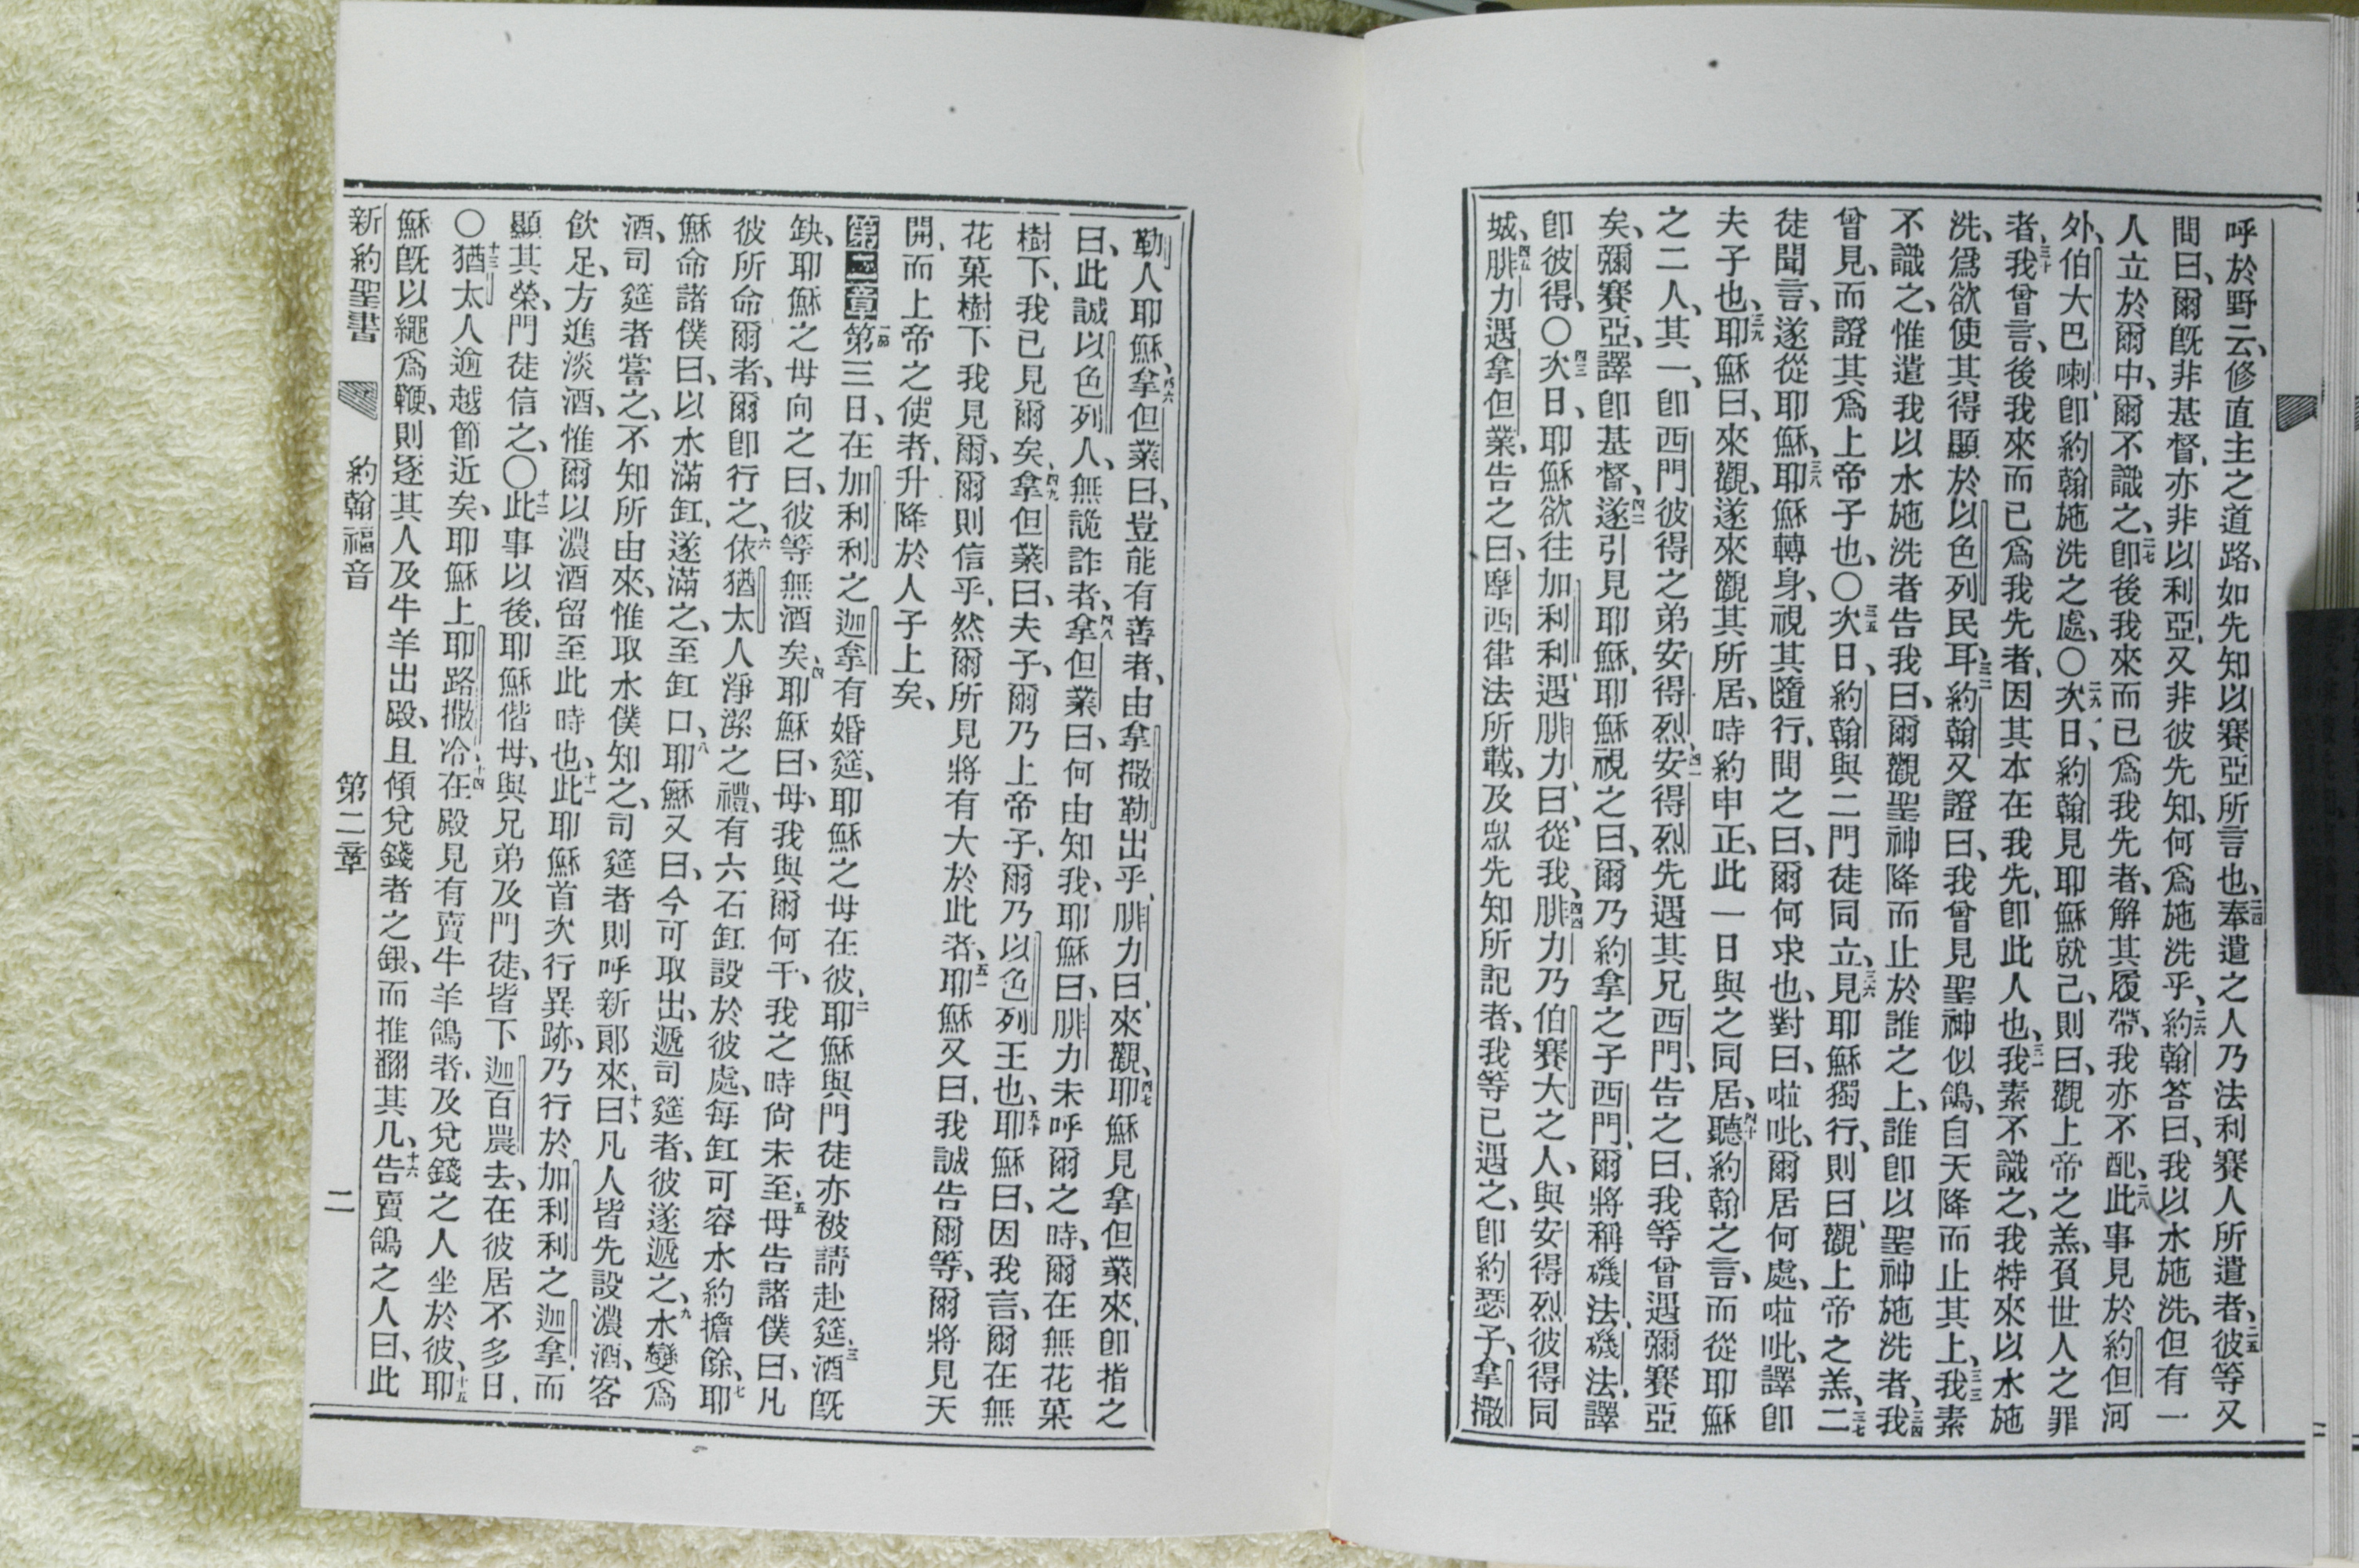 呼於野云、修直主之道路、如先知以賽亞所言也、二四奉遣之人乃法利賽人所遣者、二五彼等又
問曰、爾旣非基督、亦非以利亞、又非彼先知、何爲施洗乎、二六約翰答曰、我以水施洗、但有一
人立於爾中、爾不識之、二七卽後我來而已爲我先者、解其履帶、我亦不配、二八此事見於約但河
外、伯大巴喇、卽約翰施洗之處、〇二九次日、約翰見耶穌就己、則曰、觀上帝之羔、負世人之罪
者、三十我曾言、後我來而已爲我先者、因其本在我先、卽此人也、三一我素不識之、我特來以水施
洗、爲欲使其得顯於以色列民耳、三二約翰又證曰、我曾見聖神似鴿、自天降而止其上、三三我素
不識之、惟遣我以水施洗者告我曰、爾觀聖神降而止於誰之上、誰卽以聖神施洗者、三四我
曾見、而證其爲上帝子也、〇三五次日、約翰與二門徒同立、三六見耶穌獨行、則曰、觀上帝之羔、三七二
徒聞言、遂從耶穌、三八耶穌轉身、視其隨行、問之曰、爾何求也、對曰、啦吡、爾居何處、啦吡、譯卽
夫子也、三九耶穌曰、來觀、遂來觀其所居、時約申正、此一日與之同居、四十聽約翰之言、而從耶穌
之二人、其一、卽西門彼得之弟安得烈、四一安得烈先遇其兄西門、告之曰、我等曾遇彌賽亞
矣、彌賽亞、譯卽基督、四二遂引見耶穌、耶穌視之曰、爾乃約拿之子西門、爾將稱磯法、磯法、譯
卽彼得、〇四三次日、耶穌欲往加利利、遇腓力、曰、從我、四四腓力乃伯賽大之人、與安得烈彼得同
城、四五腓力遇拿但業、告之曰、摩西律法所載、及衆先知所記者、我等已遇之、卽約瑟子、拿撒
勒人耶穌、四六拿但業曰、豈能有善者、由拿撒勒出乎、腓力曰、來觀、四七耶穌見拿但業來、卽指之
曰、此誠以色列人、無詭詐者、四八拿但業曰、何由知我、耶穌曰、腓力未呼爾之時、爾在無花菓
樹下、我已見爾矣、四九拿但業曰、夫子、爾乃上帝子、爾乃以色列王也、五十耶穌曰、因我言、爾在無
花菓樹下我見爾、爾則信乎、然爾所見將有大於此者、五一耶穌又曰、我誠告爾等、爾將見天
開、而上帝之使者、升降於人子上矣、
第二章一節第三日、在加利利之迦拿有婚筵、耶穌之母在彼、二耶穌與門徒亦被請赴筵、三酒旣
缺、耶穌之母向之曰、彼等無酒矣、四耶穌曰、母、我與爾何干、我之時尙未至、五母告諸僕曰、凡
彼所命爾者、爾卽行之、六依猶太人淨潔之禮、有六石缸設於彼處、每缸可容水約擔餘、七耶
穌命諸僕曰、以水滿缸、遂滿之、至缸口、八耶穌又曰、今可取出、遞司筵者、彼遂遞之、九水變爲
酒、司筵者嘗之、不知所由來、惟取水僕知之、司筵者則呼新郞來、十曰、凡人皆先設濃酒、客
飮足、方進淡酒、惟爾以濃酒留至此時也、十一此耶穌首次行異跡、乃行於加利利之迦拿、而
顯其榮、門徒信之、〇十二此事以後、耶穌偕母、與兄弟及門徒、皆下迦百農去、在彼居不多日、
〇十三猶太人逾越節近矣、耶穌上耶路撒冷、十四在殿見有賣牛羊鴿者、及兌錢之人坐於彼、十五耶
穌旣以繩爲鞭、則逐其人及牛羊出殿、且傾兌錢者之銀、而推翻其几、十六告賣鴿之人曰、此
新約聖書 約翰福音 第二章 二